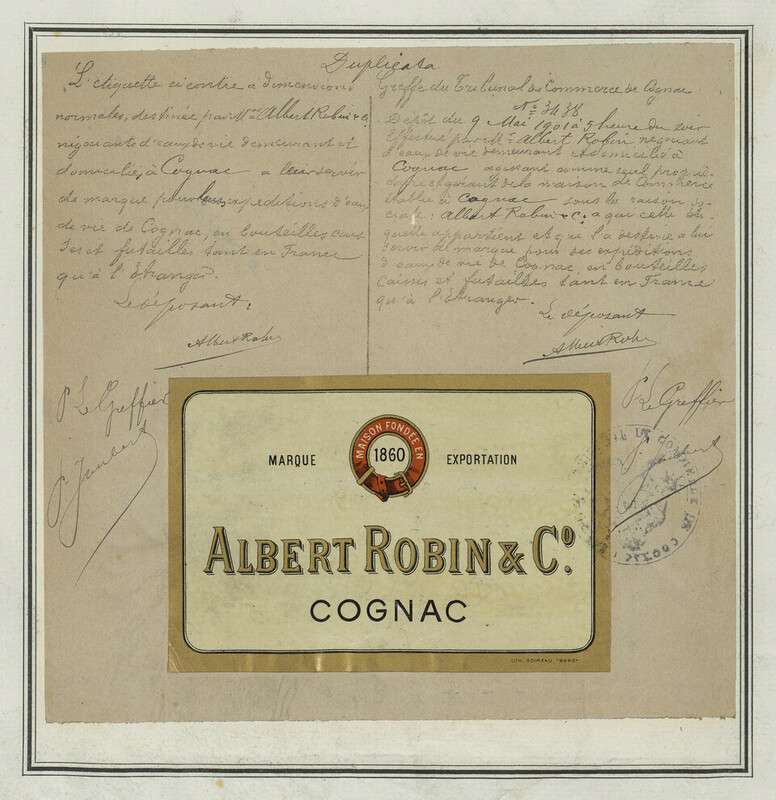 Duplicata
L'etiquette ci contre à dimensions
normales, destinée par Mrs Albert Robin & Co
négociants d'eaux de vie demeurant et
domiciliés à Cognac a leur servir
de marque pour leurs expéditions d'eaux
de vie de Cognac, en bouteilles cais
ses et futailles tant en France
qu'à l'Etranger.
Le déposant,
Albert Robin
P. Le Greffier
J. Jaubert
Greffe du Tribunal de Commerce de Cognac
No 3438
Dépôt du 9 Mai 1901 à 5 heure du soir
Effectué par Mr Albert Robin négociant
d'eaux de vie demeurant domicilié à
Cognac agissant comme seul propri-
étaire gérant de la maison de Commerce
établie à Cognac sous la raison so-
ciale: Albert Robin & Co a qui cette éti-
quette appartient et qui l'a destiné a lui
servir de marque pour ses expéditions
d'eaux de vie de Cognac en bouteilles
caisses et futailles tant en France
qu'à l'Etranger.
Le déposant
Albert Robin
P. Le Greffier
J. Jaubert
MAISON FONDÉE EN
MARQUE 1860 EXPORTATION
ALBERT ROBIN & Co.
COGNAC
LITH. GOIREAU "BORDX"